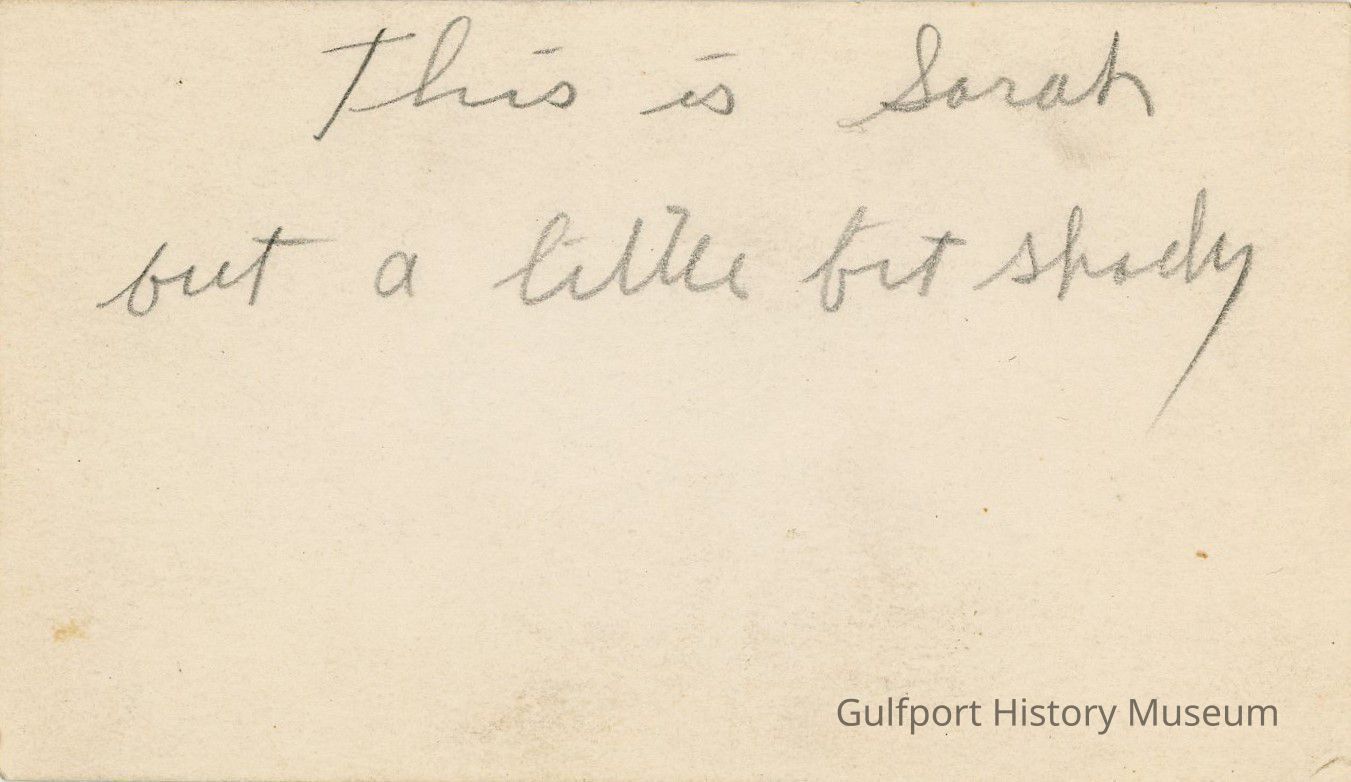 This is Sarah
but a little bit shady
Gulfport History Museum